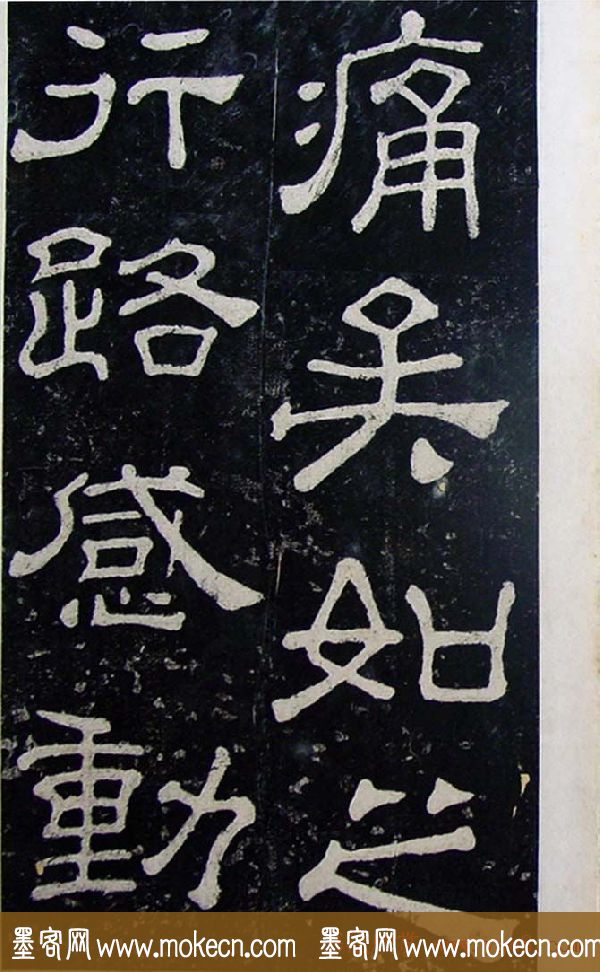 痛矣如之
行路感動
墨客网 www.mokecn.com 墨客网 www.mokecn.com